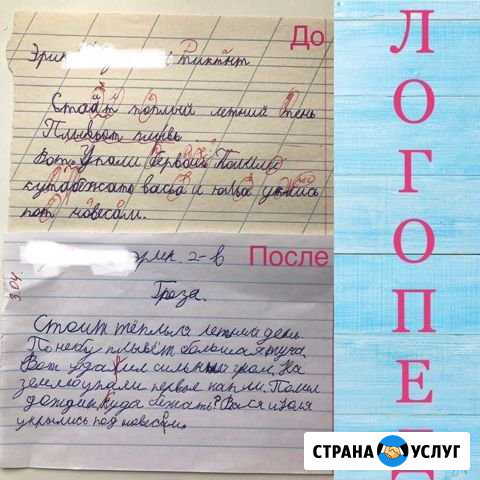 До
Эрик диктант
Стаит торлый летний тень
Плывьот
Вот Упали Первои
кутабежать васья и юлья
пот навесам.
После
2-в
3.04.
Гроза.
Стоит тёплыя летний день.
По небу плывёт большая туча.
Вот ударил сильный гром. На
землю упали первые капли. Полил
дождик. Куда бежать? Вася и Юля
укрылись под навесом.
ЛОГОПЕД
СТРАНА УСЛУГ